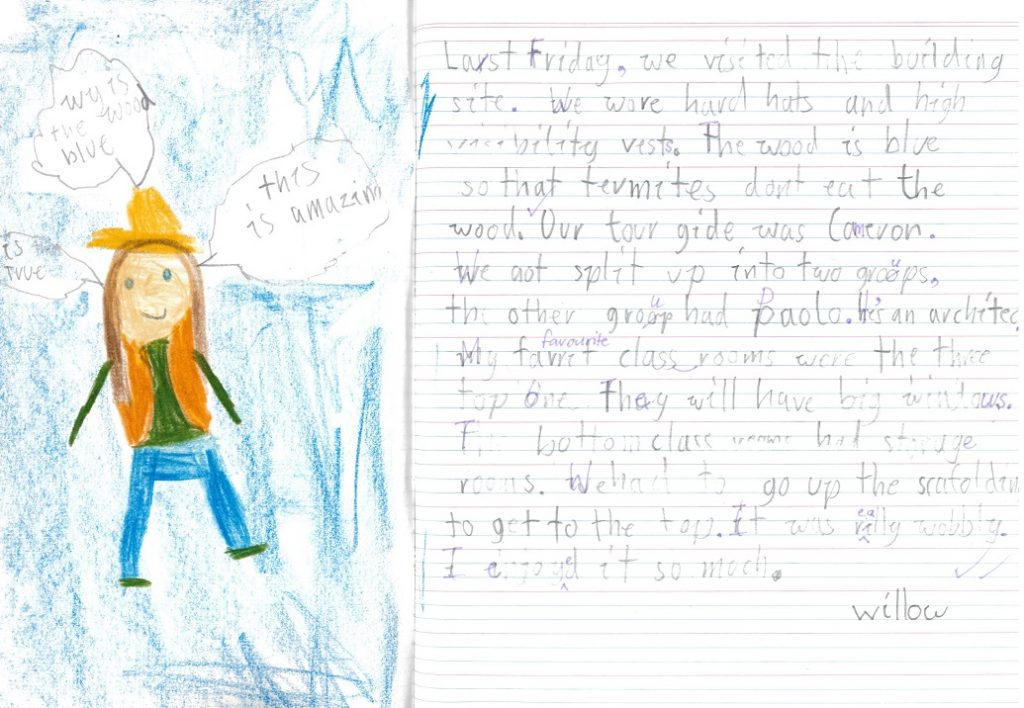 wy is
the wood
blue
this
is amazim
is
True
Larst Friday, we visited the building
site. We wore hard hats and high
visibility vests. The wood is blue
so that termites dont eat the
wood. Our tour gide was Cameron.
We got split up into two groups,
the other group had Paolo. He's an architec
favourite
My farrit class rooms were the three
top one. They will have big windows.
The bottom class rooms had storage
rooms. We had to go up the scafoldin
to get to the top. It was really wobbly.
I enjoyed it so much.
willow